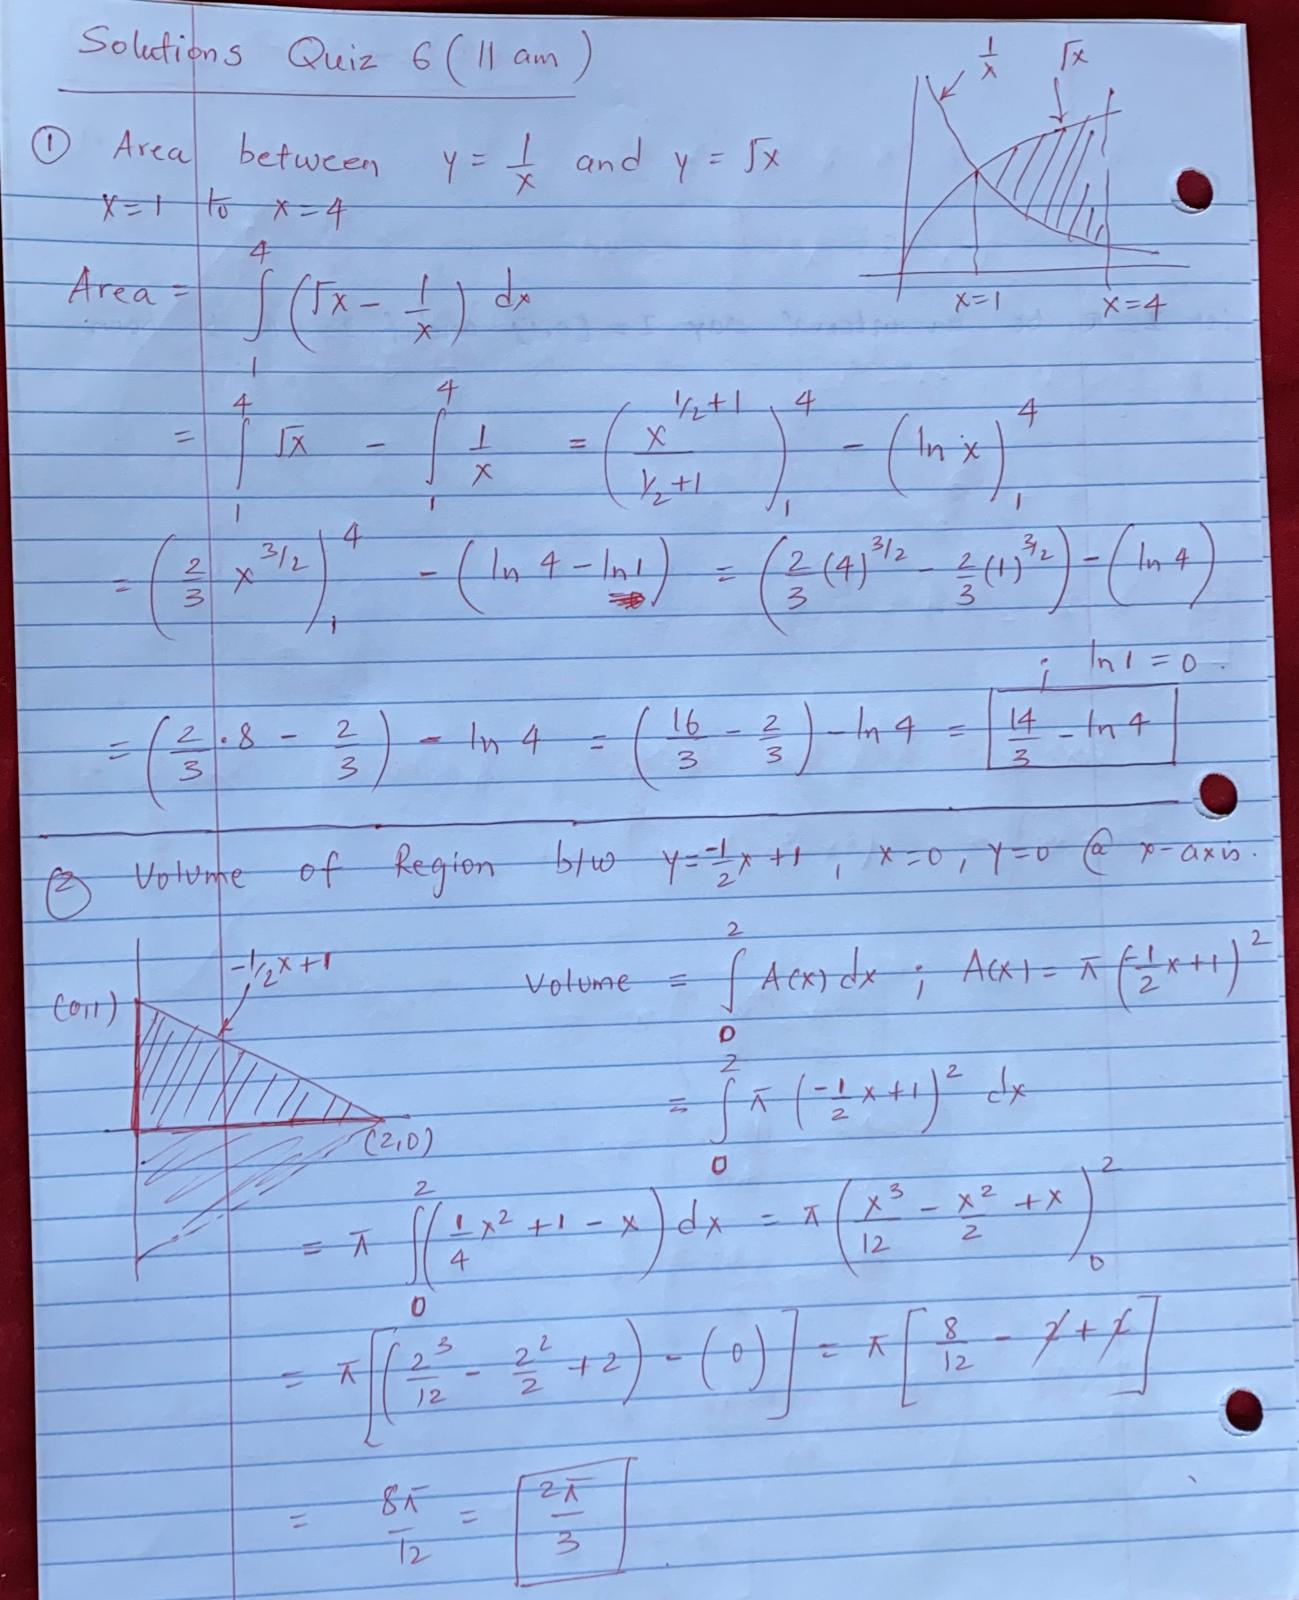 Solutions Quiz 6 (11 am)
1/x √x
① Area between y = 1/x and y = √x
x=1 to x=4
x=1 x=4
Area = ∫₁⁴ (√x - 1/x) dx
= ∫₁⁴ √x - ∫₁⁴ 1/x = (x^(1/2+1) / (1/2+1))₁⁴ - (ln x)₁⁴
= (2/3 x^(3/2))₁⁴ - (ln 4 - ln 1) = (2/3 (4)^(3/2) - 2/3 (1)^(3/2)) - (ln 4)
; ln 1 = 0.
= (2/3 · 8 - 2/3) - ln 4 = (16/3 - 2/3) - ln 4 = 14/3 - ln 4
② Volume of Region b/w y = -1/2 x + 1, x=0, y=0 @ x-axis.
-1/2x+1
(0,1)
(2,0)
Volume = ∫₀² A(x) dx ; A(x) = π (-1/2 x + 1)²
= ∫₀² π (-1/2 x + 1)² dx
= π ∫₀² (1/4 x² + 1 - x) dx = π (x³/12 - x²/2 + x)₀²
= π [(2³/12 - 2²/2 + 2) - (0)] = π [8/12 - 2 + 2]
= 8π/12 = 2π/3